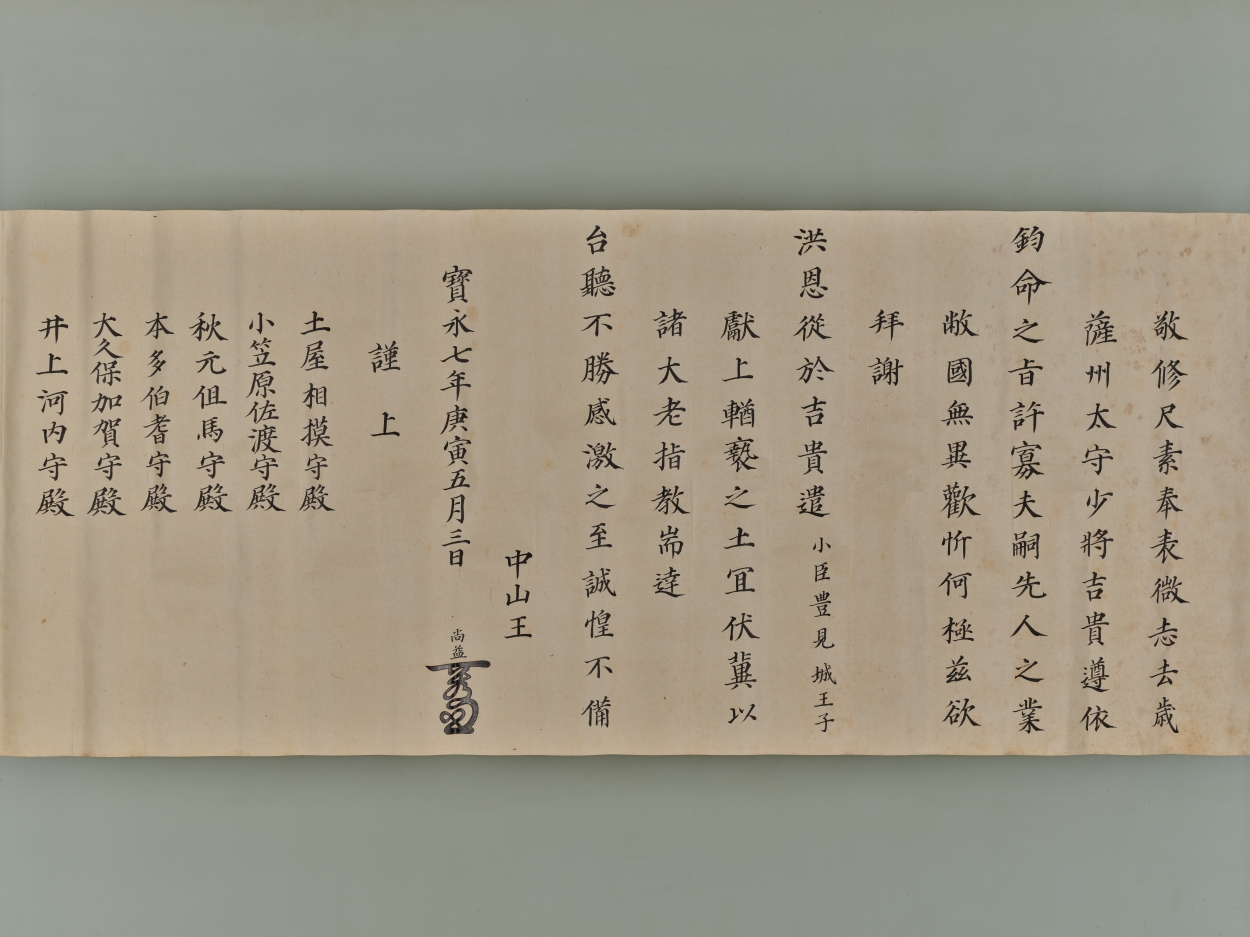 敬修尺素奉表微志去歳
薩州太守少將吉貴遵依
鈞命之旨許寡夫嗣先人之業
敝國無異歡忻何極茲欲
拜謝
洪恩從於吉貴遣小臣豊見城王子
獻上輶褻之土宜伏冀以
諸大老指教耑達
台聽不勝感激之至誠惶不備
中山王
寶永七年庚寅五月三日 尚益
謹上
土屋相摸守殿
小笠原佐渡守殿
秋元但馬守殿
本多伯耆守殿
大久保加賀守殿
井上河内守殿